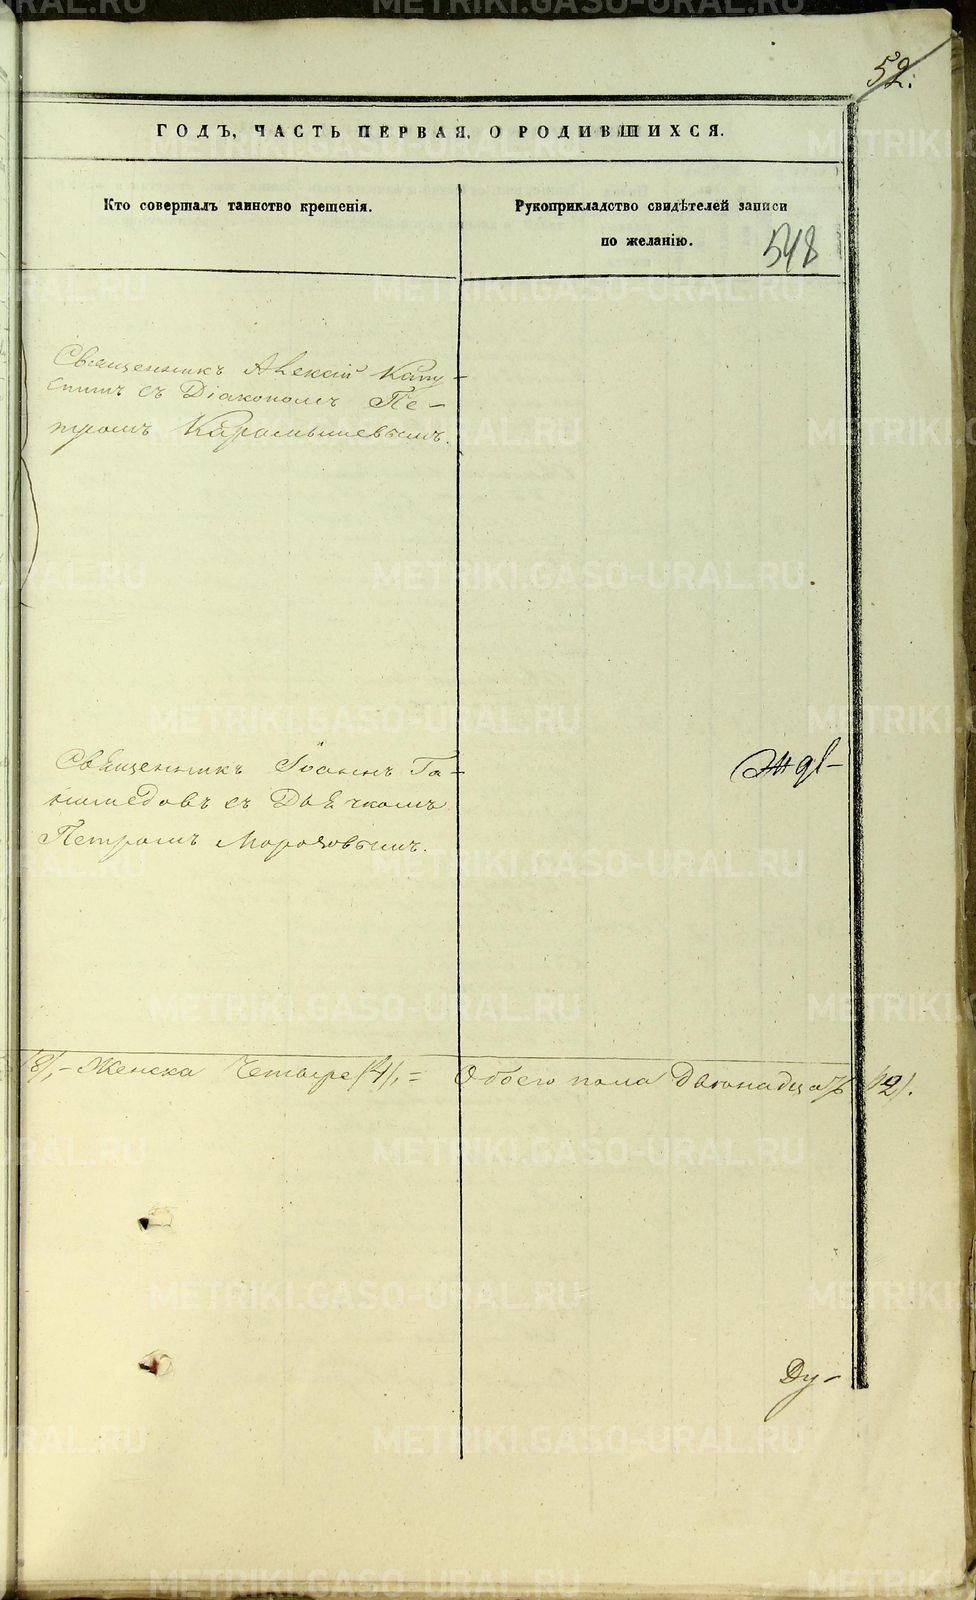 52.
ГОДЪ, ЧАСТЬ ПЕРВАЯ, О РОДИВШИХСЯ.
Кто совершалъ таинство крещенія.
Рукоприкладство свидѣтелей записи
по желанію.
548
Священникъ Алексій Капу-
стинъ съ Діакономъ Пе-
тромъ Карамышевымъ.
Священникъ Іоаннъ Га-
нимедовъ съ Дьячкомъ
Петромъ Морозовымъ.
(8),- Женска Четыре (4),=
Обоего пола Двѣнадцать (12).
Ду-
METRIKI.GASO-URAL.RU